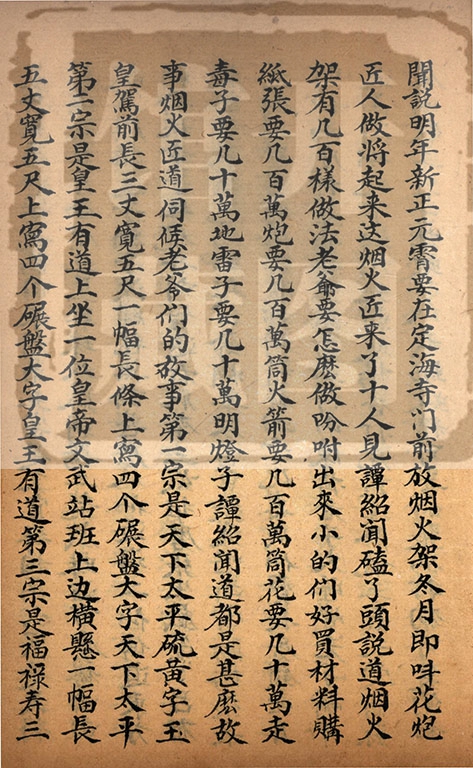 聞說明年新正元霄要在定海寺门前放烟火架冬月即呌花炮
匠人做将起来这烟火匠来了十人見譚紹闻磕了頭說道烟火
架有几百樣做法老爺要怎麽做吩咐出來小的们好買材料購
紙張要几百萬炮要几百萬筒火箭要几百萬筒花要几十萬走
毒子要几十萬地雷子要几十萬明燈子譚紹闻道都是甚麽故
事烟火匠道伺候老爷们的故事第一宗是天下太平硫黄字玉
皇駕前長三丈寬五尺一幅長條上寫四个碾盤大字天下太平
第二宗是皇王有道上坐一位皇帝文武站班上边横懸一幅長
五丈寬五尺上寫四个碾盤大字皇王有道第三宗是福禄寿三